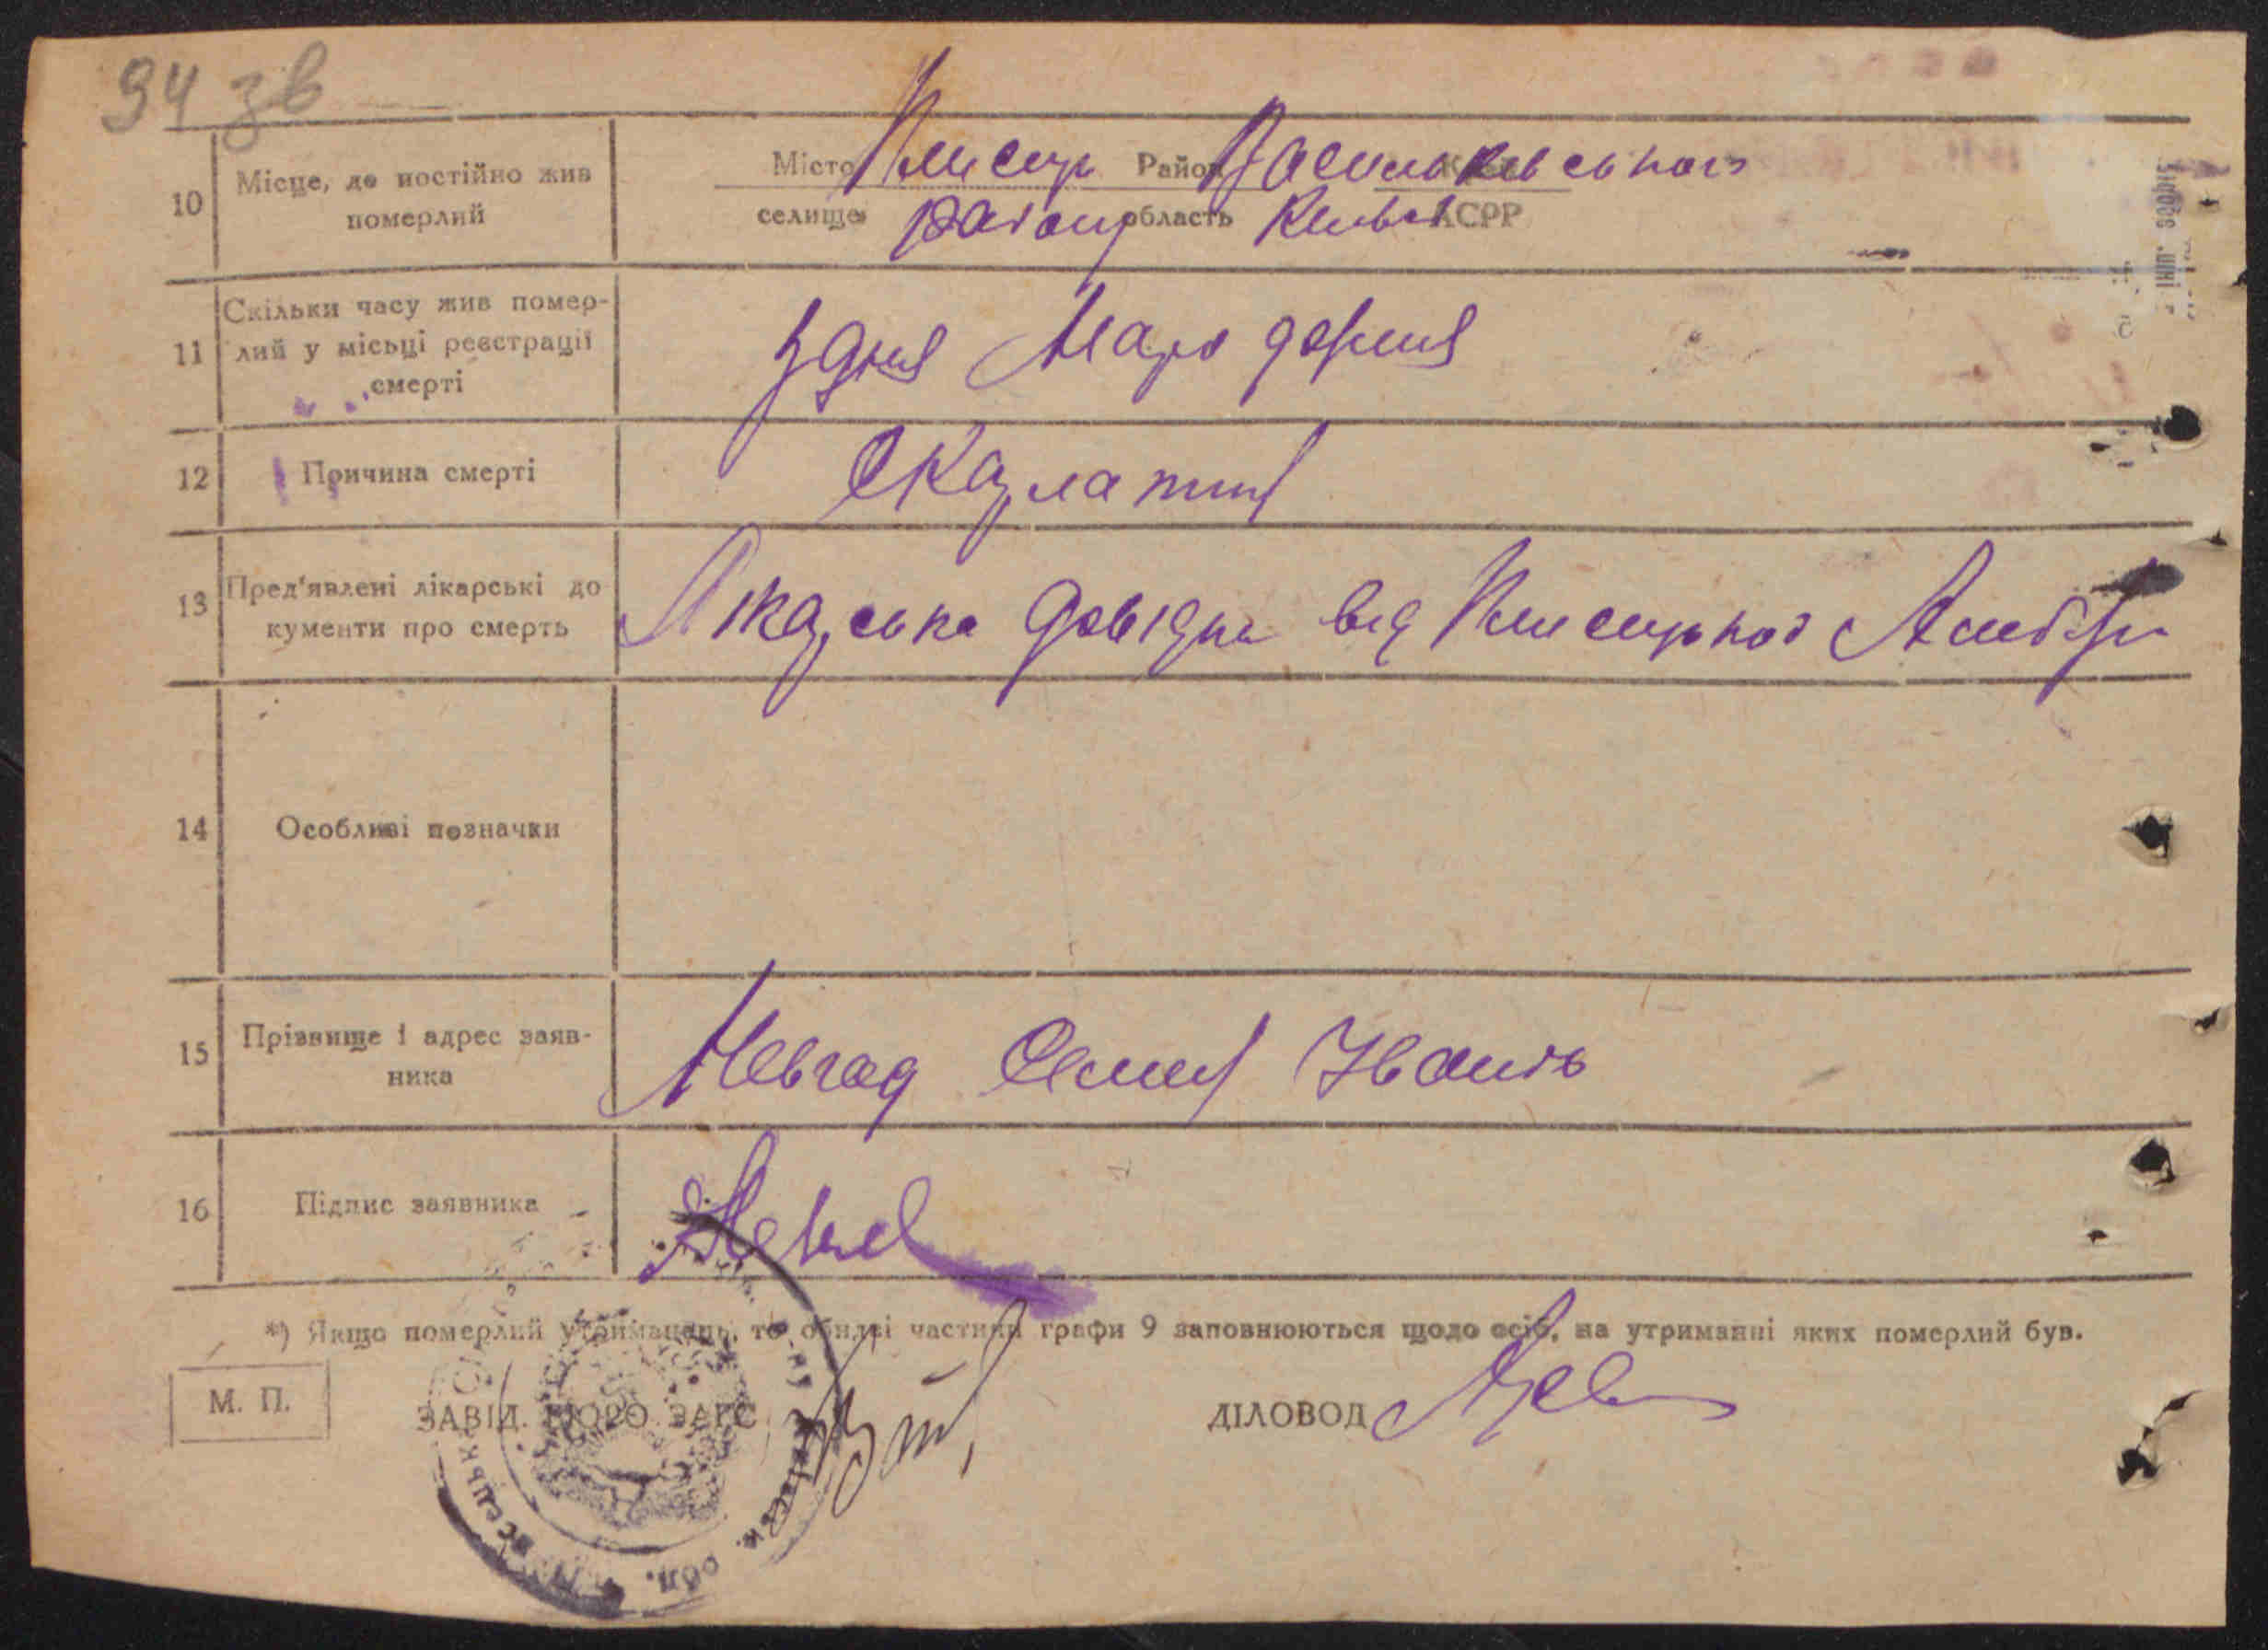 94 зв
10 Місце, де постійно жив померлий
Місто Плисецьк Район Васильківського
селище району область Київської АСРР
11 Скільки часу жив помер-
лий у місьці реєстрації
смерті
дня
12 Причина смерті Скарлатина
13 Пред'явлені лікарські до
кументи про смерть
Лікарська довідка від Плисецької Амбул
14 Особливі позначки
15 Прізвище і адрес заяв-
ника
Невгад Семен Іванов
16 Підпис заявника
*) Якщо померлий утриманець, то обидві частини графи 9 заповнюються щодо осіб, на утриманні яких померлий був.
М. П.
ЗАВІД. БЮРО ЗАГС
ДІЛОВОД
обл.